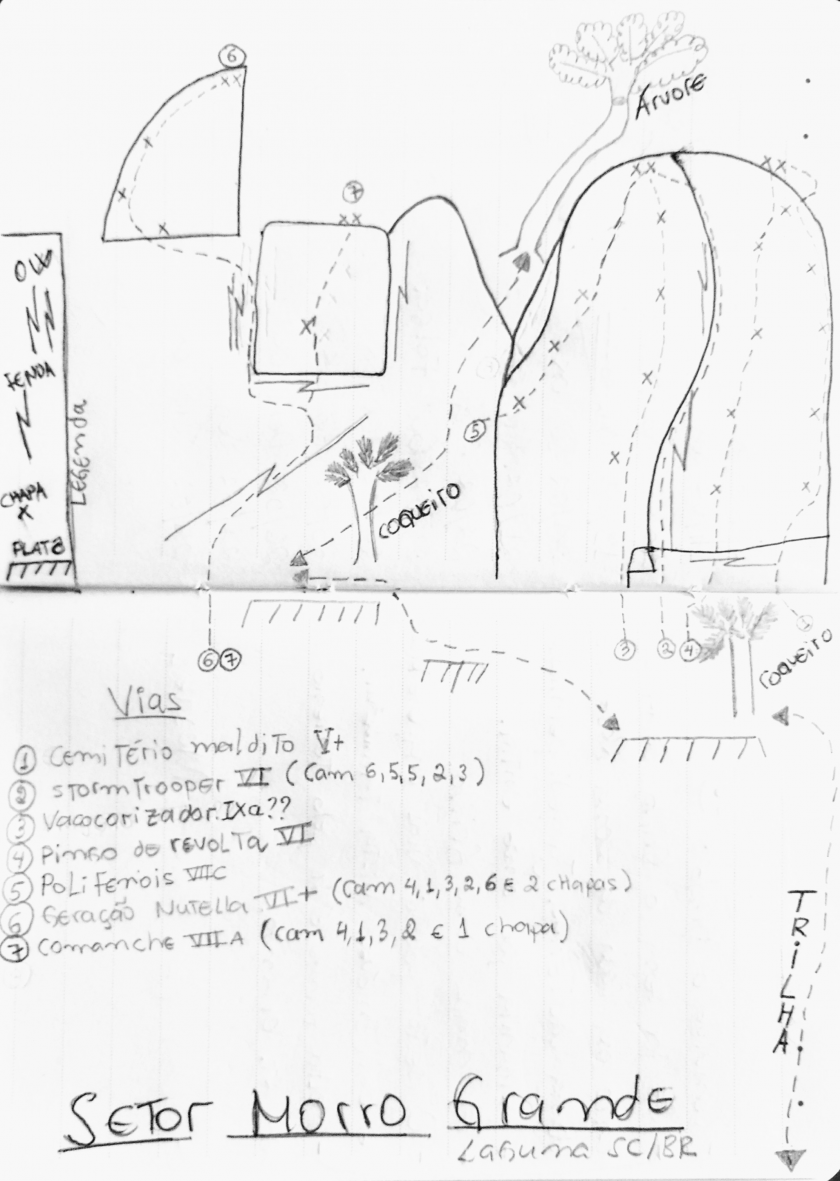 6
7
Árvore
OW
FENDA
CHAPA
X
PLATÔ
Legenda
5
coqueiro
6 7
3 2 4 1
coqueiro
Vias
1 Cemitério maldito V+
2 StormTrooper VI (Cam 6,5,5,2,3)
3 Vacocarizador IXa??
4 Pingo de revolta VI
5 Polifenois VIIC
6 Geração Nutella VI+ (Cam 4,1,3,2,6 E 2 chapas)
7 Comanche VIIA (cam 4,1,3,2 E 1 chapa)
TRILHA
SETOR Morro Grande
Laguna SC/BR